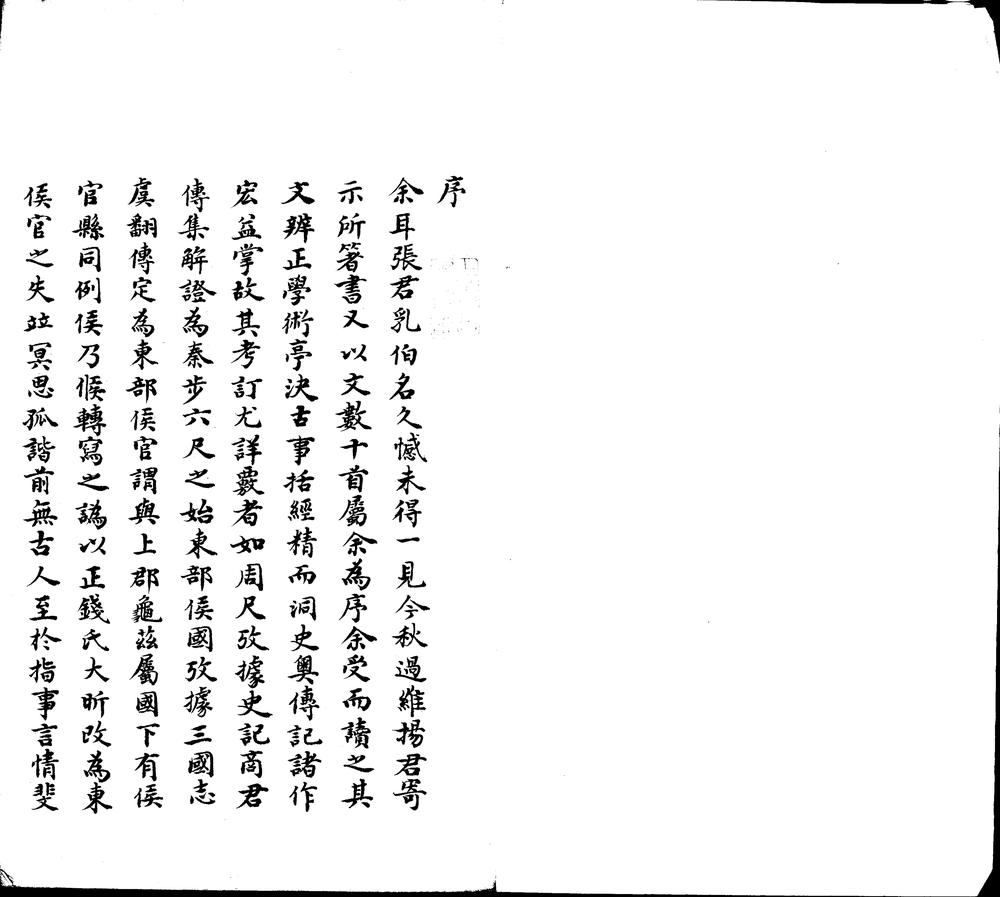 序
余耳張君乳伯名久憾未得一見今秋過維揚君寄
示所箸書又以文數十首屬余為序余受而讀之其
文辨正學術亭決古事括經精而洞史奧傳記諸作
宏益掌故其考訂尤詳覈者如周尺攷據史記商君
傳集解證為秦步六尺之始東部侯國攷據三國志
虞翻傳定為東部侯官謂與上郡龜茲屬國下有侯
官縣同例侯乃候轉寫之譌以正錢氏大昕改為東
侯官之失竝冥思孤詣前無古人至於指事言情斐